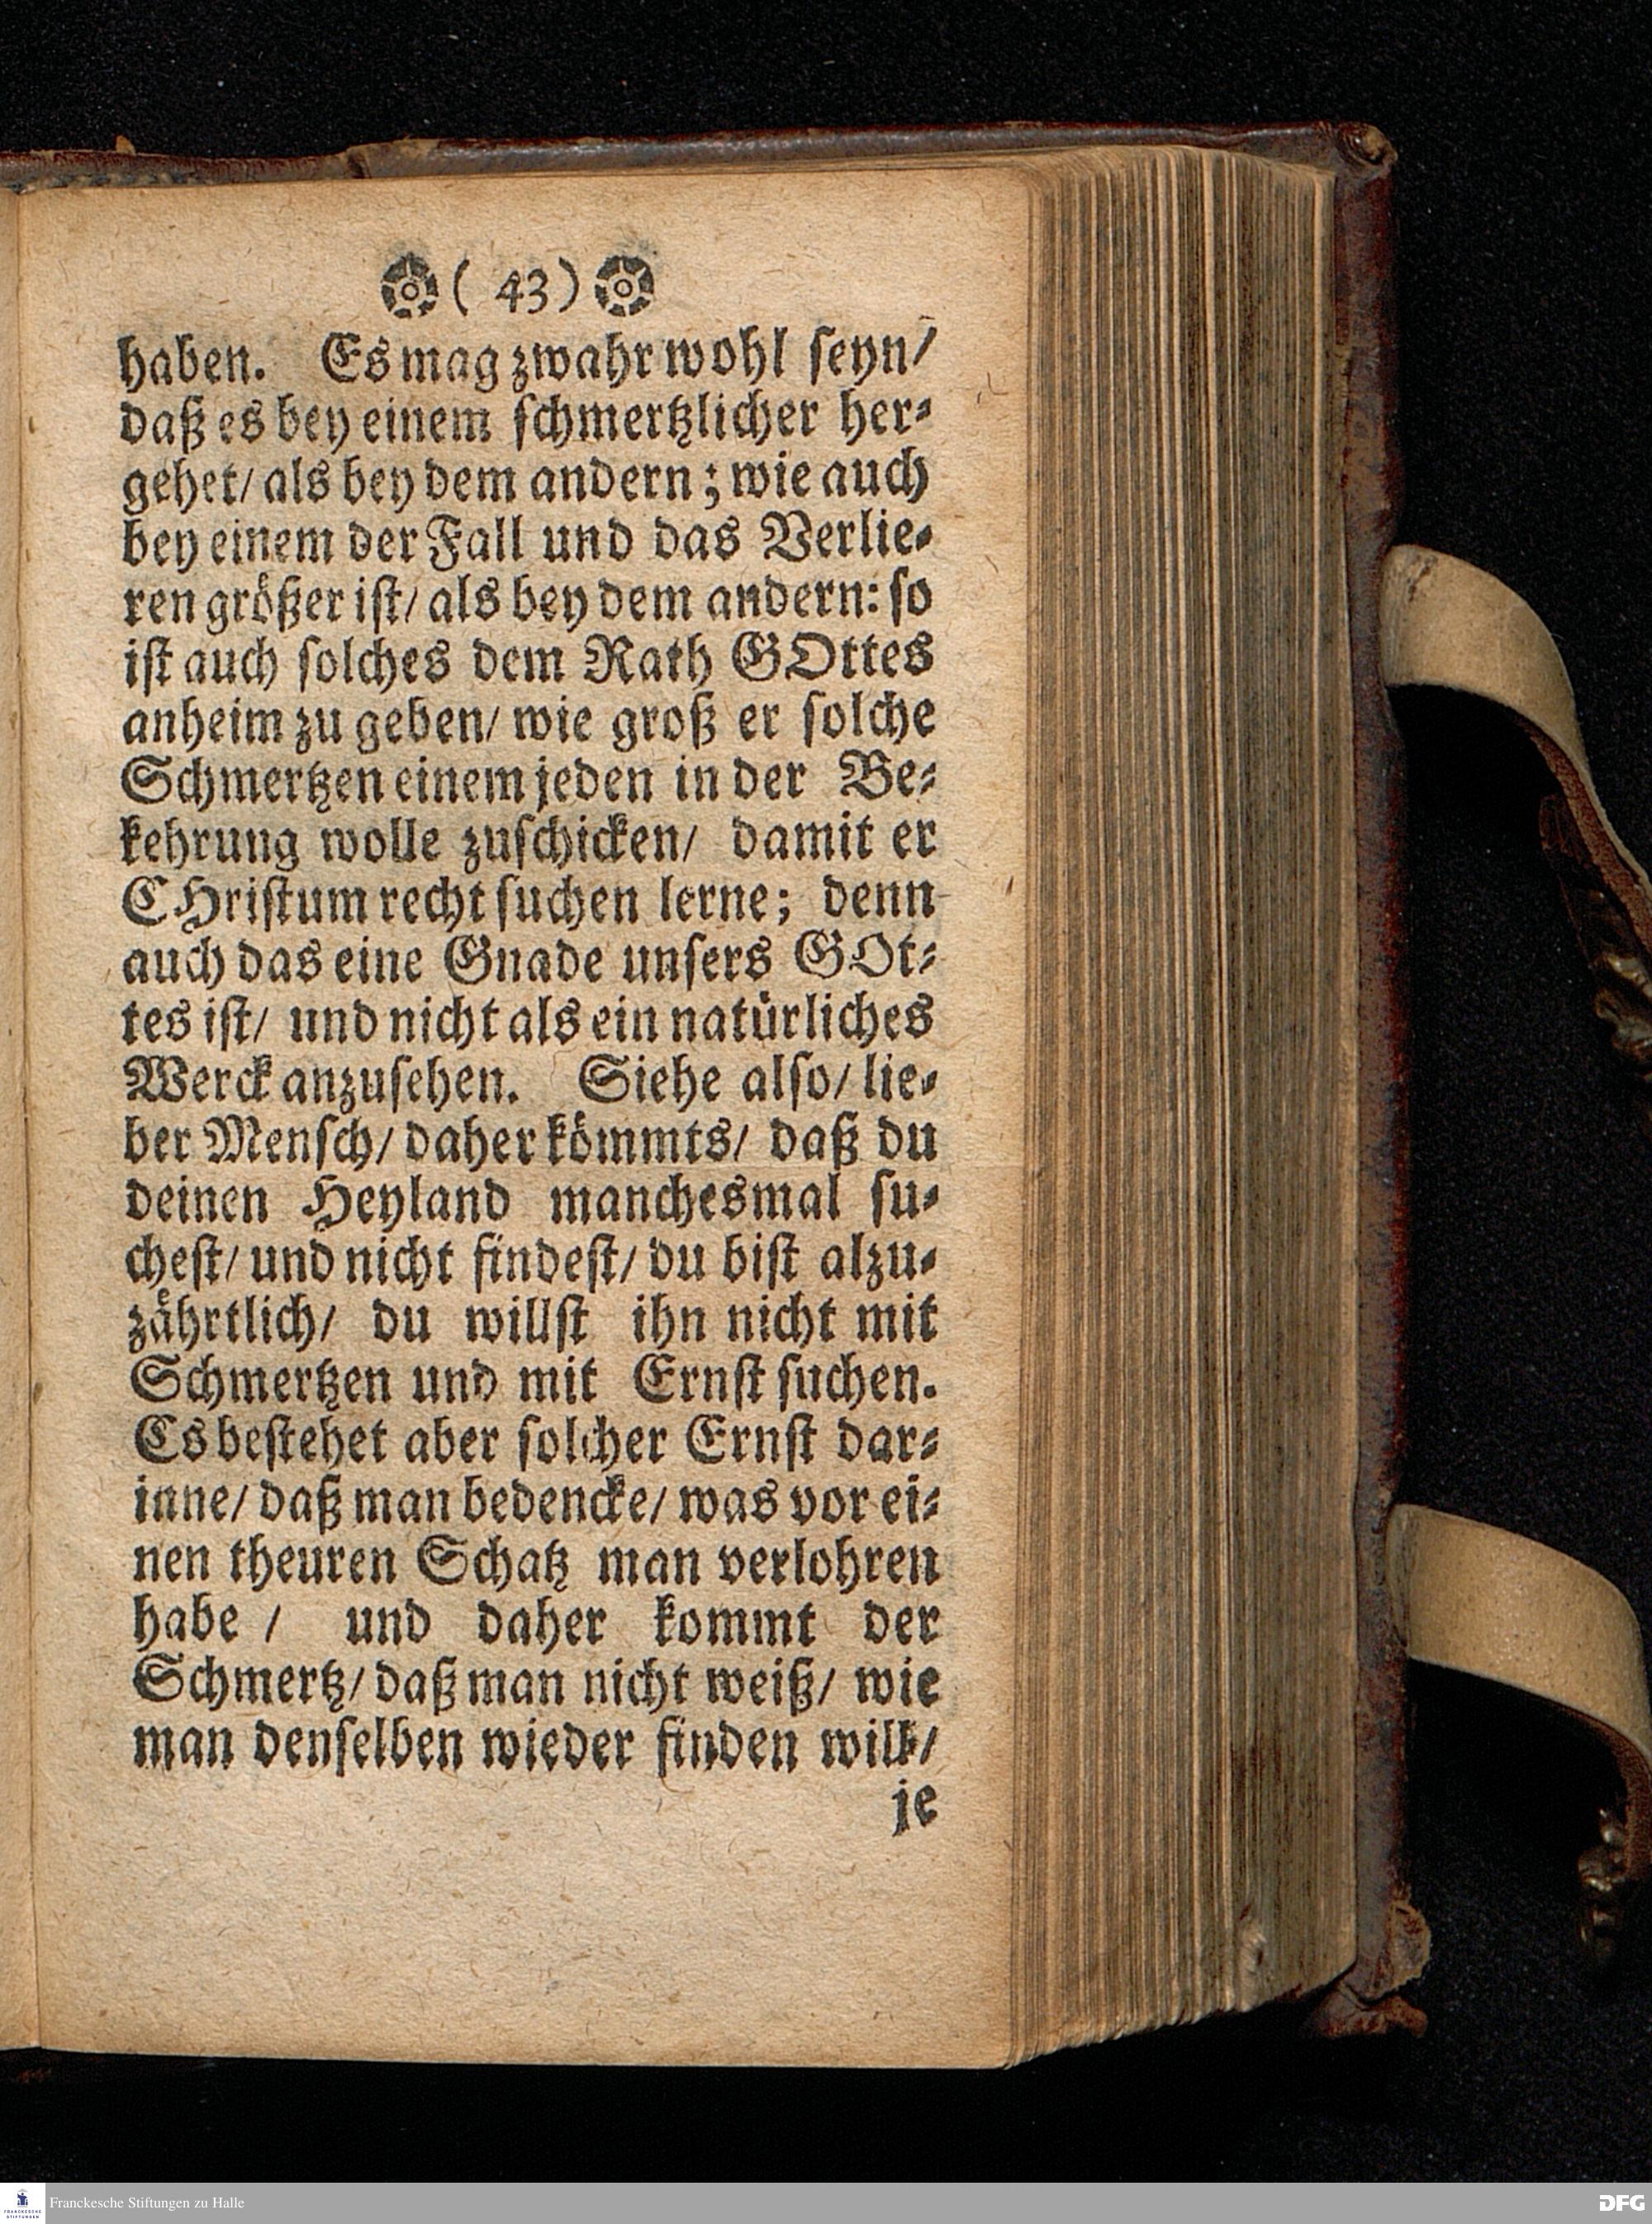 ( 43 )
haben. Es mag zwahr wohl seyn/
daß es bey einem schmertzlicher her-
gehet/ als bey dem andern; wie auch
bey einem der Fall und das Verlie-
ren größer ist/ als bey dem andern: so
ist auch solches dem Rath GOttes
anheim zu geben/ wie groß er solche
Schmertzen einem jeden in der Be-
kehrung wolle zuschicken/ damit er
CHristum recht suchen lerne; denn
auch das eine Gnade unsers GOt-
tes ist/ und nicht als ein natürliches
Werck anzusehen. Siehe also/ lie-
ber Mensch/ daher kömmts/ daß du
deinen Heyland manchesmal su-
chest/ und nicht findest/ du bist alzu-
zährtlich/ du willst ihn nicht mit
Schmertzen und mit Ernst suchen.
Es bestehet aber solcher Ernst dar-
inne/ daß man bedencke/ was vor ei-
nen theuren Schatz man verlohren
habe / und daher kommt der
Schmertz/ daß man nicht weiß/ wie
man denselben wieder finden will/
je
Franckesche Stiftungen zu Halle
DFG